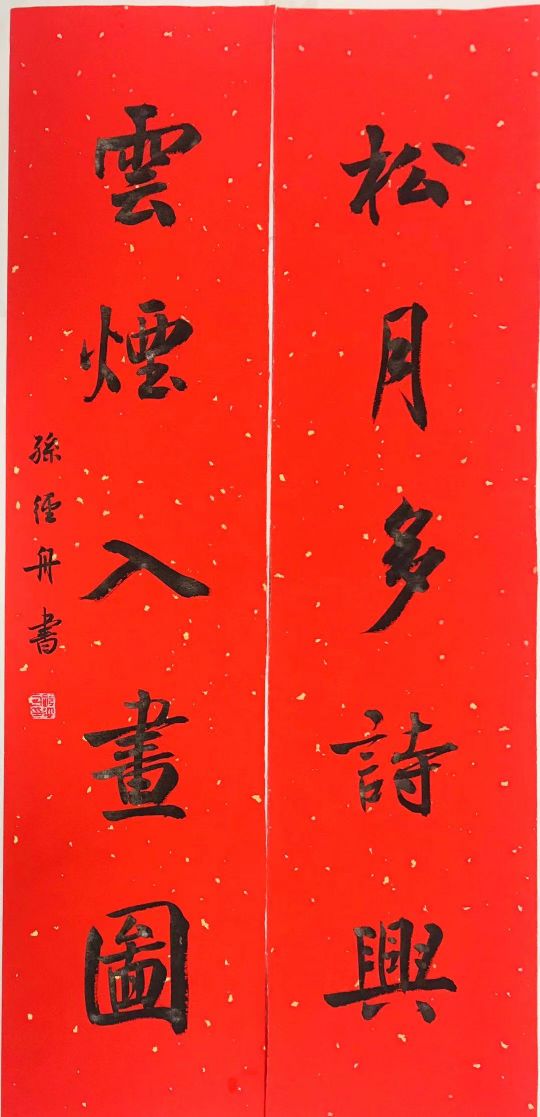 松月多詩興
雲煙入畫圖
孫經舟書